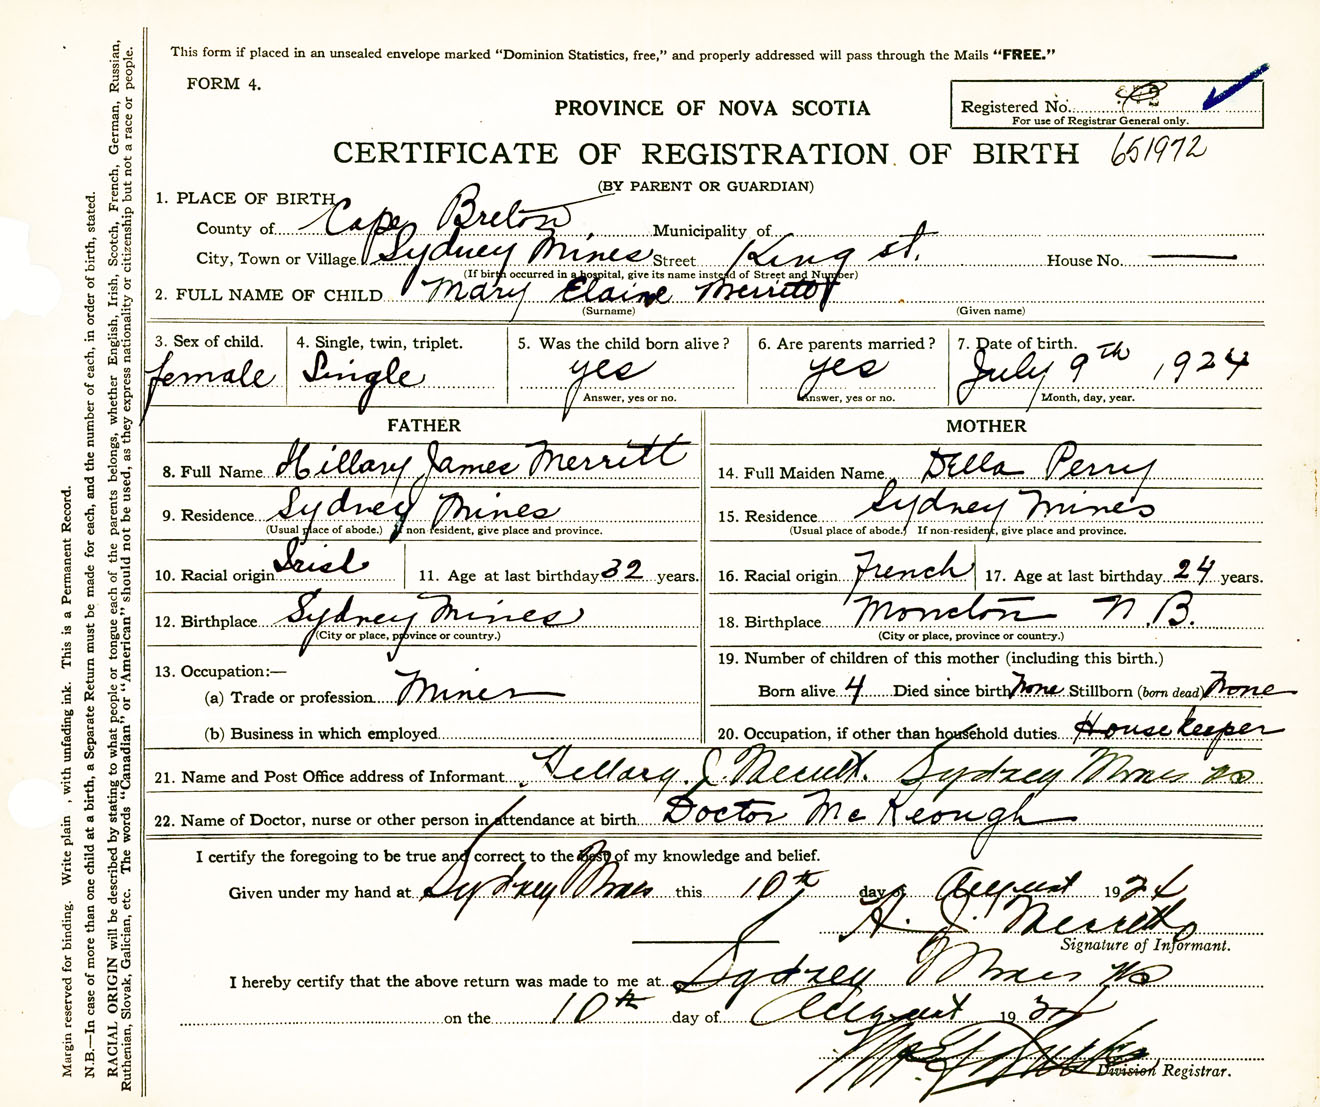 This form if placed in an unsealed envelope marked "Dominion Statistics, free," and properly addressed will pass through the Mails "FREE."
FORM 4.
PROVINCE OF NOVA SCOTIA
Registered No.
For use of Registrar General only.
CERTIFICATE OF REGISTRATION OF BIRTH 651972
(BY PARENT OR GUARDIAN)
1. PLACE OF BIRTH
County of Cape Breton Municipality of
City, Town or Village Sydney Mines Street King st. House No. —
(If birth occurred in a hospital, give its name instead of Street and Number)
2. FULL NAME OF CHILD Mary Elaine Merritt
(Surname) (Given name)
3. Sex of child. 4. Single, twin, triplet. 5. Was the child born alive? 6. Are parents married? 7. Date of birth.
female Single yes yes July 9th 1924
Answer, yes or no. Answer, yes or no. Month, day, year.
FATHER MOTHER
8. Full Name Hillary James Merritt 14. Full Maiden Name Della Perry
9. Residence Sydney Mines 15. Residence Sydney Mines
(Usual place of abode.) If non-resident, give place and province. (Usual place of abode.) If non-resident, give place and province.
10. Racial origin Irish 11. Age at last birthday 32 years. 16. Racial origin French 17. Age at last birthday 24 years.
12. Birthplace Sydney Mines 18. Birthplace Moncton N.B.
(City or place, province or country.) (City or place, province or country.)
13. Occupation:— 19. Number of children of this mother (including this birth.)
(a) Trade or profession Miner Born alive 4 Died since birth None Stillborn (born dead) None
(b) Business in which employed 20. Occupation, if other than household duties Housekeeper
21. Name and Post Office address of Informant Hillary J. Merritt. Sydney Mines NS
22. Name of Doctor, nurse or other person in attendance at birth Doctor McKeough
I certify the foregoing to be true and correct to the best of my knowledge and belief.
Given under my hand at Sydney Mines this 10th day of August 1924
H. J. Merritt
Signature of Informant.
I hereby certify that the above return was made to me at Sydney Mines NS
on the 10th day of August 1924
Division Registrar.
Margin reserved for binding. Write plain , with unfading ink. This is a Permanent Record.
N.B.—In case of more than one child at a birth, a Separate Return must be made for each, and the number of each, in order of birth, stated.
RACIAL ORIGIN will be described by stating to what people or tongue each of the parents belongs, whether English, Irish, Scotch, French, German, Russian,
Ruthenian, Slovak, Galician, etc. The words "Canadian" or "American" should not be used, as they express nationality or citizenship but not a race or people.